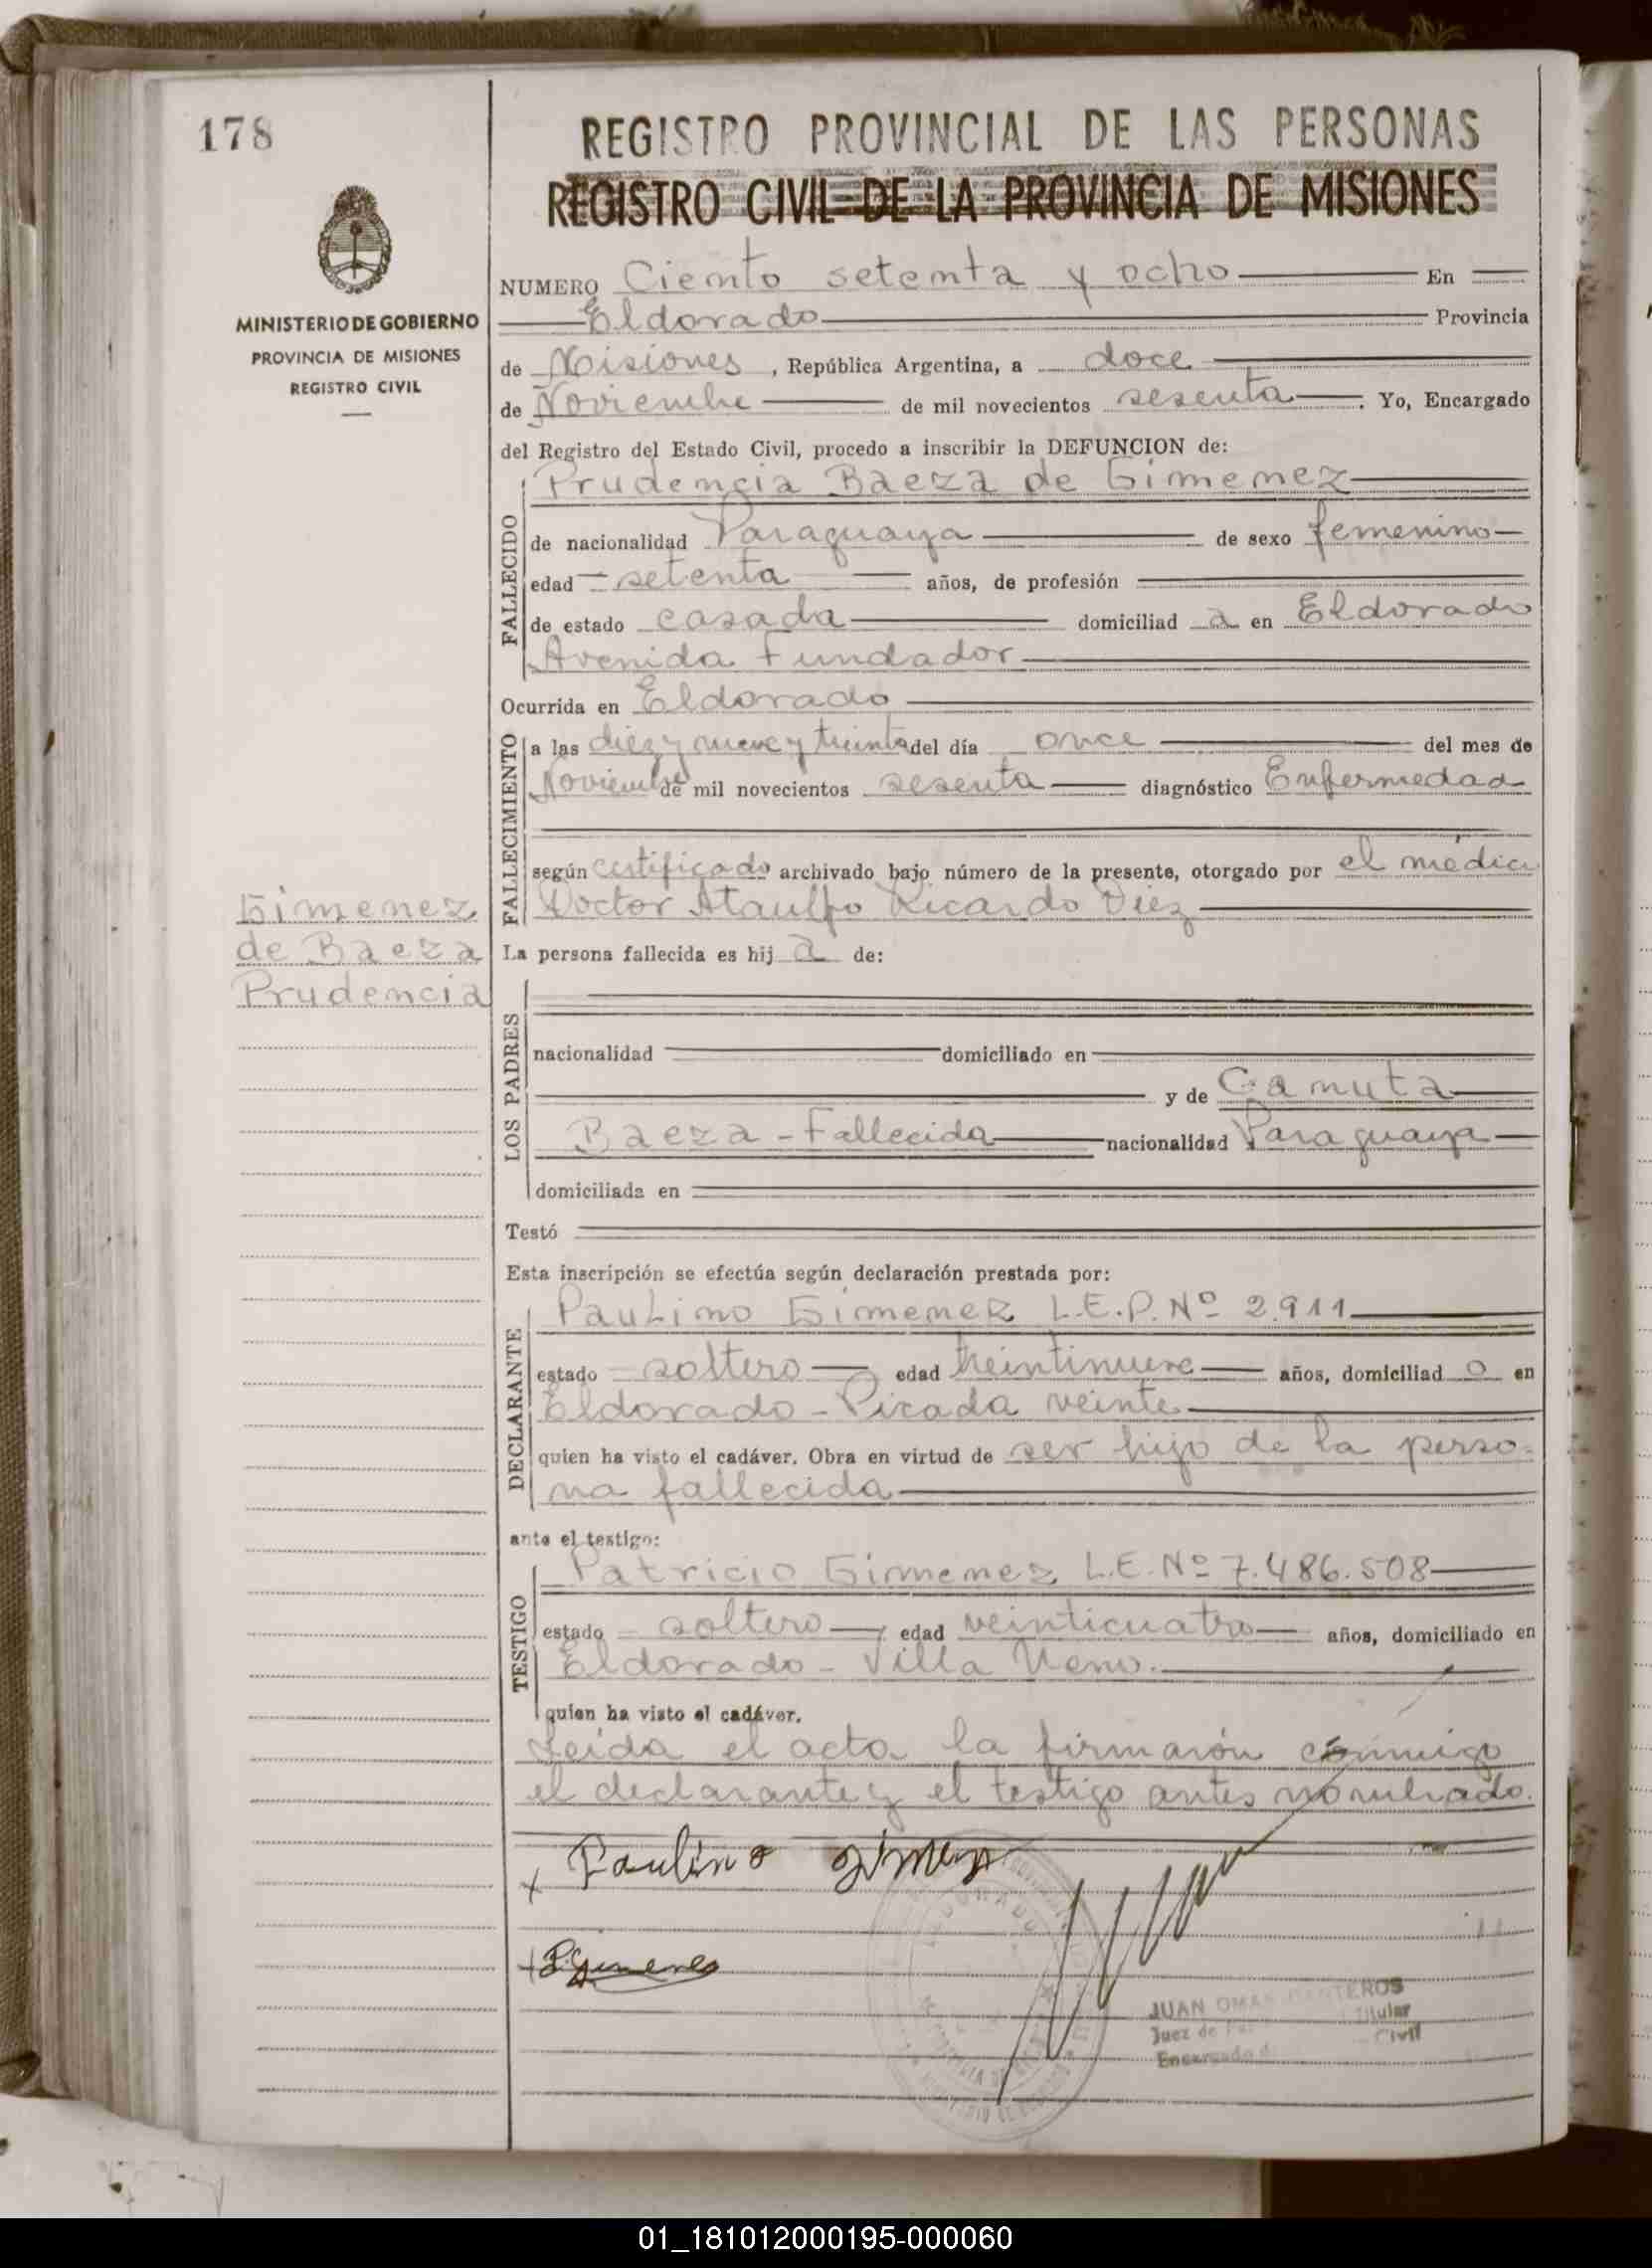 178
REGISTRO PROVINCIAL DE LAS PERSONAS
REGISTRO CIVIL DE LA PROVINCIA DE MISIONES
MINISTERIO DE GOBIERNO
PROVINCIA DE MISIONES
REGISTRO CIVIL
NUMERO Ciento setenta y ocho En
Eldorado Provincia
de Misiones, República Argentina, a doce
de Noviembre de mil novecientos sesenta. Yo, Encargado
del Registro del Estado Civil, procedo a inscribir la DEFUNCION de:
FALLECIDO
Prudencia Baeza de Gimenez
de nacionalidad Paraguaya de sexo femenino
edad setenta años, de profesión
de estado casada domiciliad a en Eldorado
Avenida Fundador
Ocurrida en Eldorado
FALLECIMIENTO
a las diez y nueve y treinta del día once del mes de
Noviembre de mil novecientos sesenta diagnóstico Enfermedad
según certificado archivado bajo número de la presente, otorgado por el médico
Doctor Ataulfo Ricardo Diez
Gimenez
de Baeza
Prudencia
La persona fallecida es hij a de:
LOS PADRES
nacionalidad domiciliado en
y de Camuta
Baeza - Fallecida nacionalidad Paraguaya
domiciliada en
Testó
Esta inscripción se efectúa según declaración prestada por:
DECLARANTE
Paulino Gimenez L.E.P. Nº 2.911
estado soltero edad treintinueve años, domiciliad o en
Eldorado - Picada veinte
quien ha visto el cadáver. Obra en virtud de ser hijo de la perso-
na fallecida
ante el testigo:
TESTIGO
Patricio Gimenez L.E. Nº 7.486.508
estado soltero, edad veinticuatro años, domiciliado en
Eldorado - Villa
quien ha visto el cadáver.
Leída el acta la firmarón conmigo
el declarante y el testigo antes nombrado.
x Paulino Gimenez
x P Gimenes
JUAN OMAR
Juez de Paz Titular
Encargado Civil
01_181012000195-000060